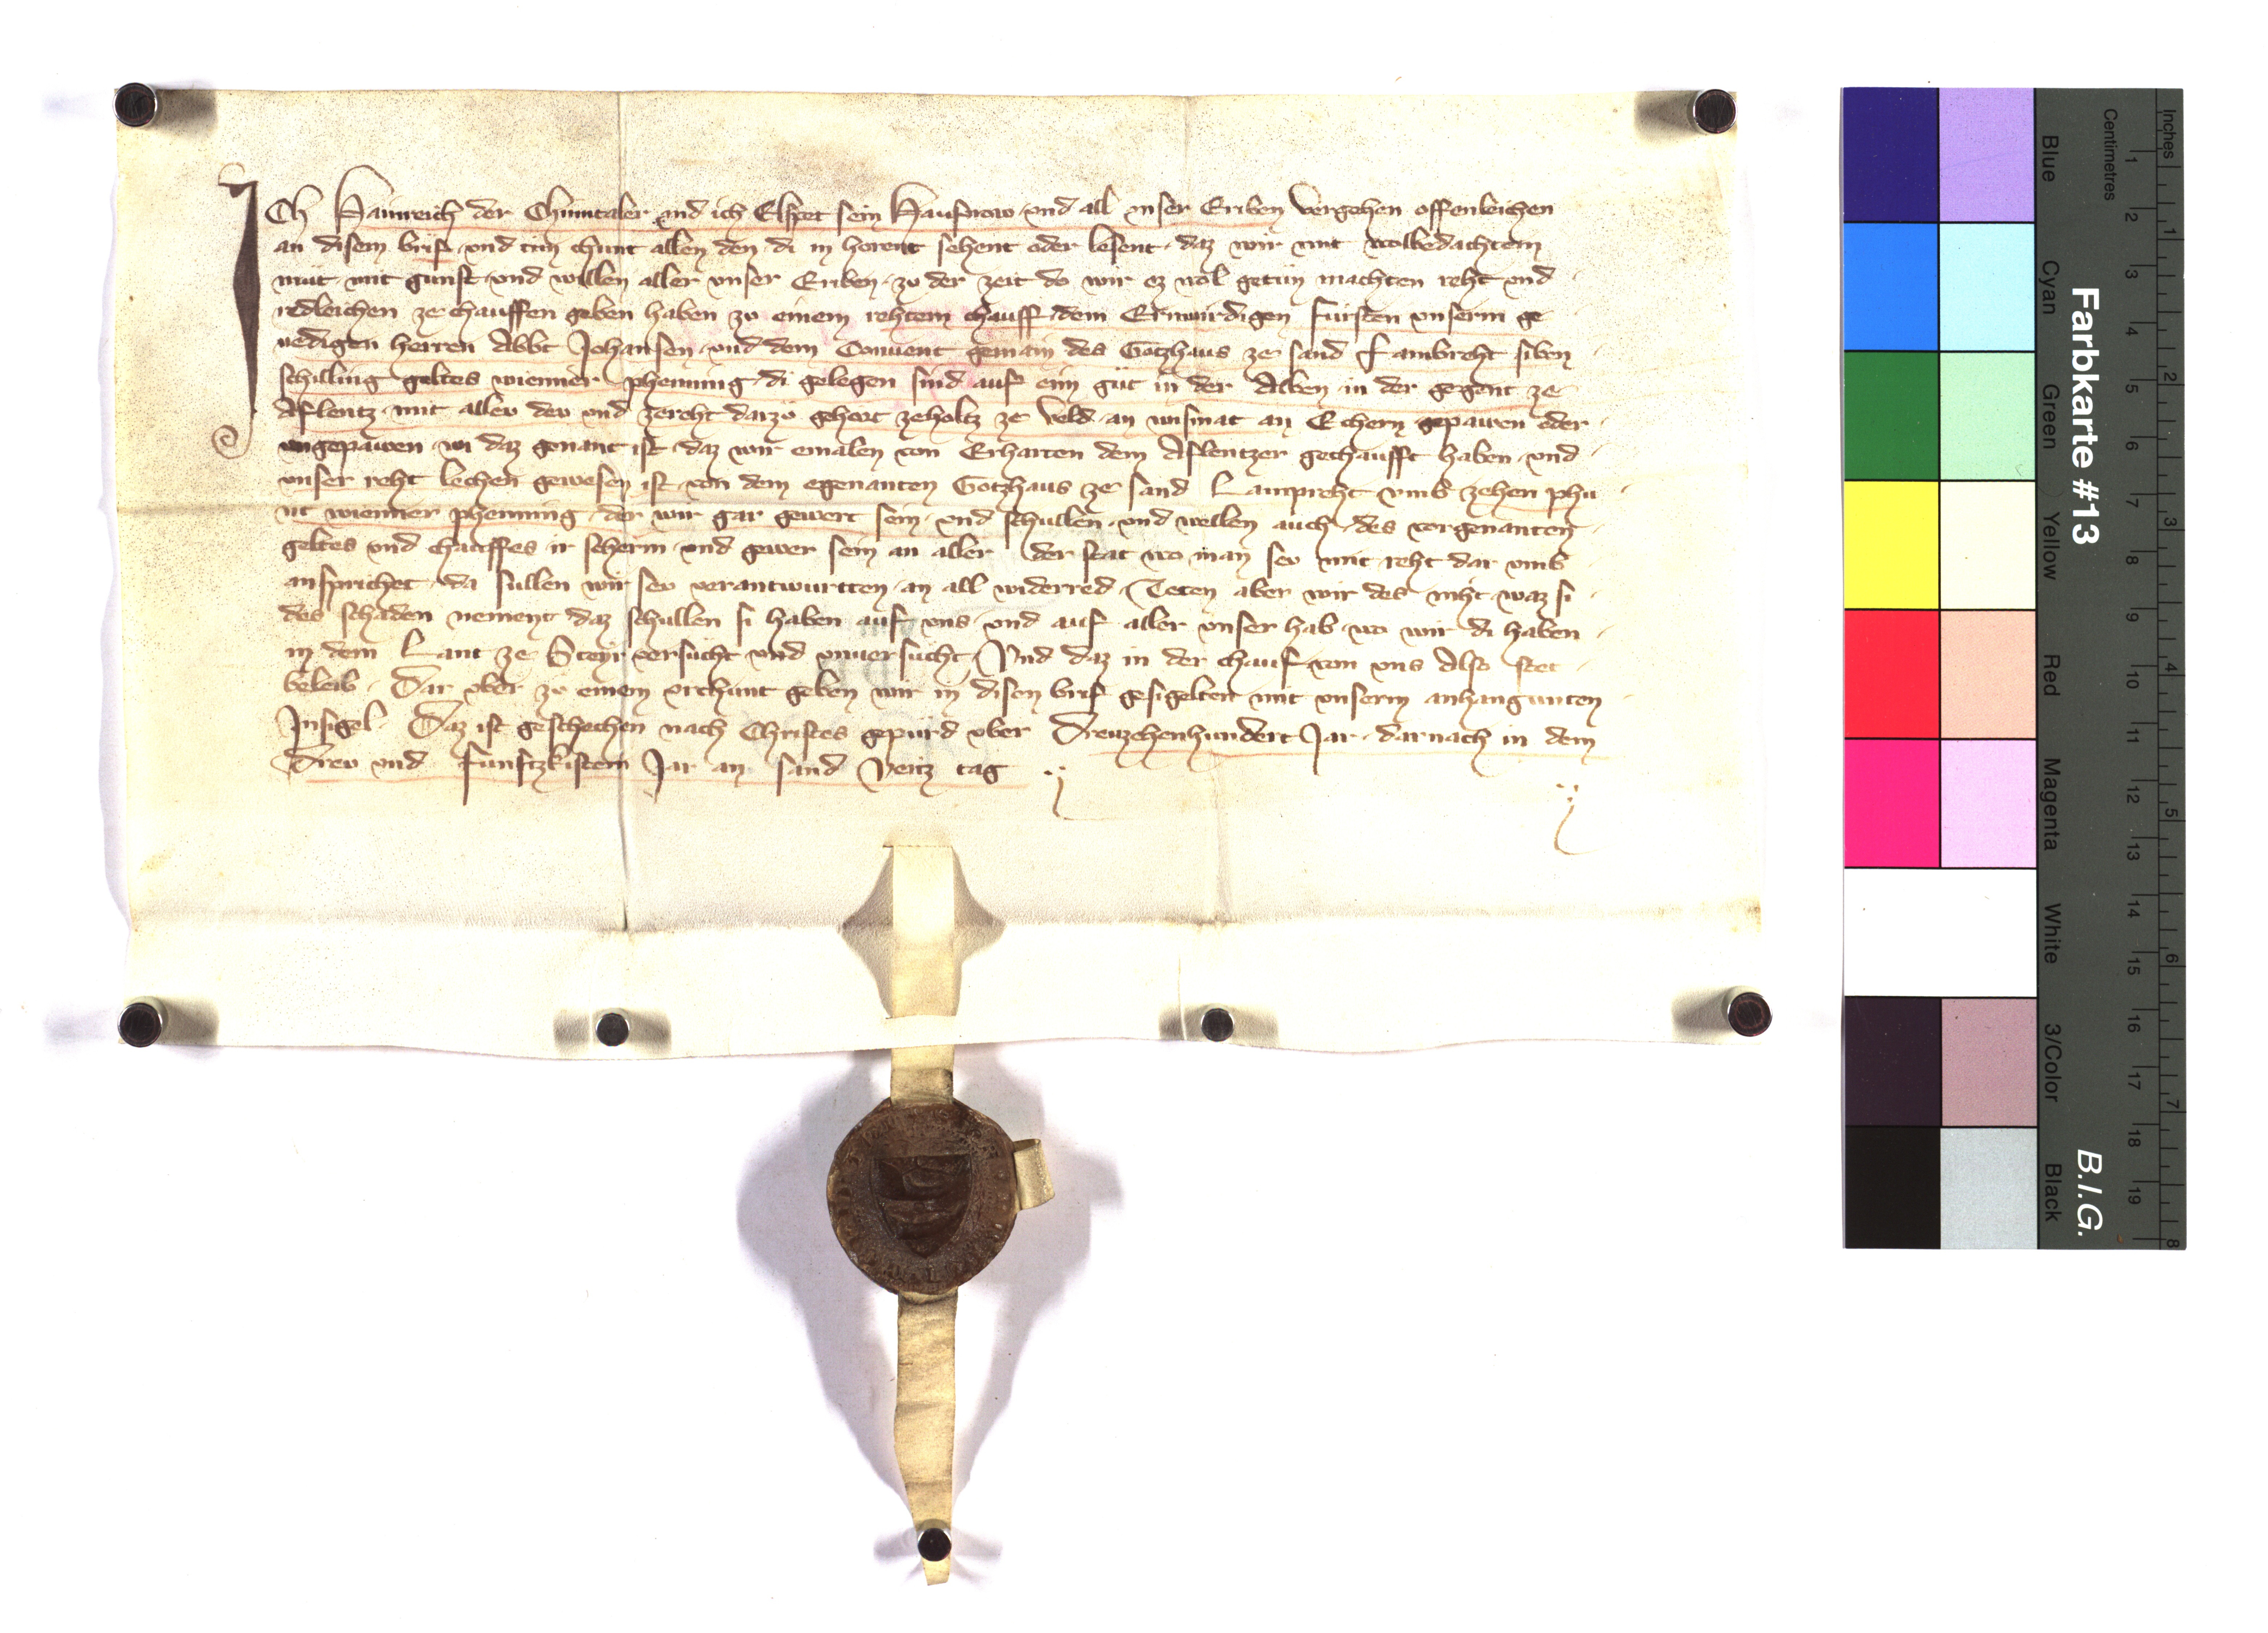 ICh Hainreich der Chumtaler und ich Elspet sein Hausvrow und all unser Eriben vergehen offenleichen
an disem brif und tun chunt allen den di in horent sehent oder lesent daz wir mit wolbedachtem
mut mit gunst und willen aller unser Eriben zu der zeit do wir ez wol getun machten reht und
redleichen ze chauffen geben haben zu einem rehtem chauff dem Erwirdigen fursten unserm ge
nedigen herren Abbt Johansen und dem Convent gemain des Gotzhaus ze sand Lambreht siben
schilling geltes wienner phenning di gelegen sind auf eim gut in der Alben in der gegent ze
Aflentz mit allev dev und zereht darzu gehort zeholtz ze veld an wismat an Echern gepawen oder
ungepawen wi daz genant ist daz wir emalen von Erharten dem Aflentzer gechaufft haben und
unser reht lechen gewesen ist von dem egenanten Gotzhaus ze sand Lampreht umb zehen phu
nt wienner phenning der wir gar gewert sein und schullen und wellen auch des vorgenanten
geltes und chauffes ir scherm und gewer sein an aller der stat wo man sev mit reht dar umb
ansprichet da sullen wir sev verantwurtten an all widerred Teten aber wir des niht waz si
des schaden nement daz schullen si haben auf uns und auf aller unser hab wo wir di haben
in dem Lant ze Steyr versucht und unversucht Und daz in der chauf von uns Also stet
beleib Dar uber zu einem urchunt geben wir in disen brif gesigelten mit unserm anhangunten
Insigel Daz ist geschechen nach Christes gepurd uber Dreuzehenhundert Jar darnach in dem
Drev und funftzkistem Jar an sand Veitz tag
Inches
Centimetres
1 2 3 4 5 6 7 8
1 2 3 4 5 6 7 8 9 10 11 12 13 14 15 16 17 18 19
Farbkarte #13
B.I.G.
Blue
Cyan
Green
Yellow
Red
Magenta
White
3/Color
Black